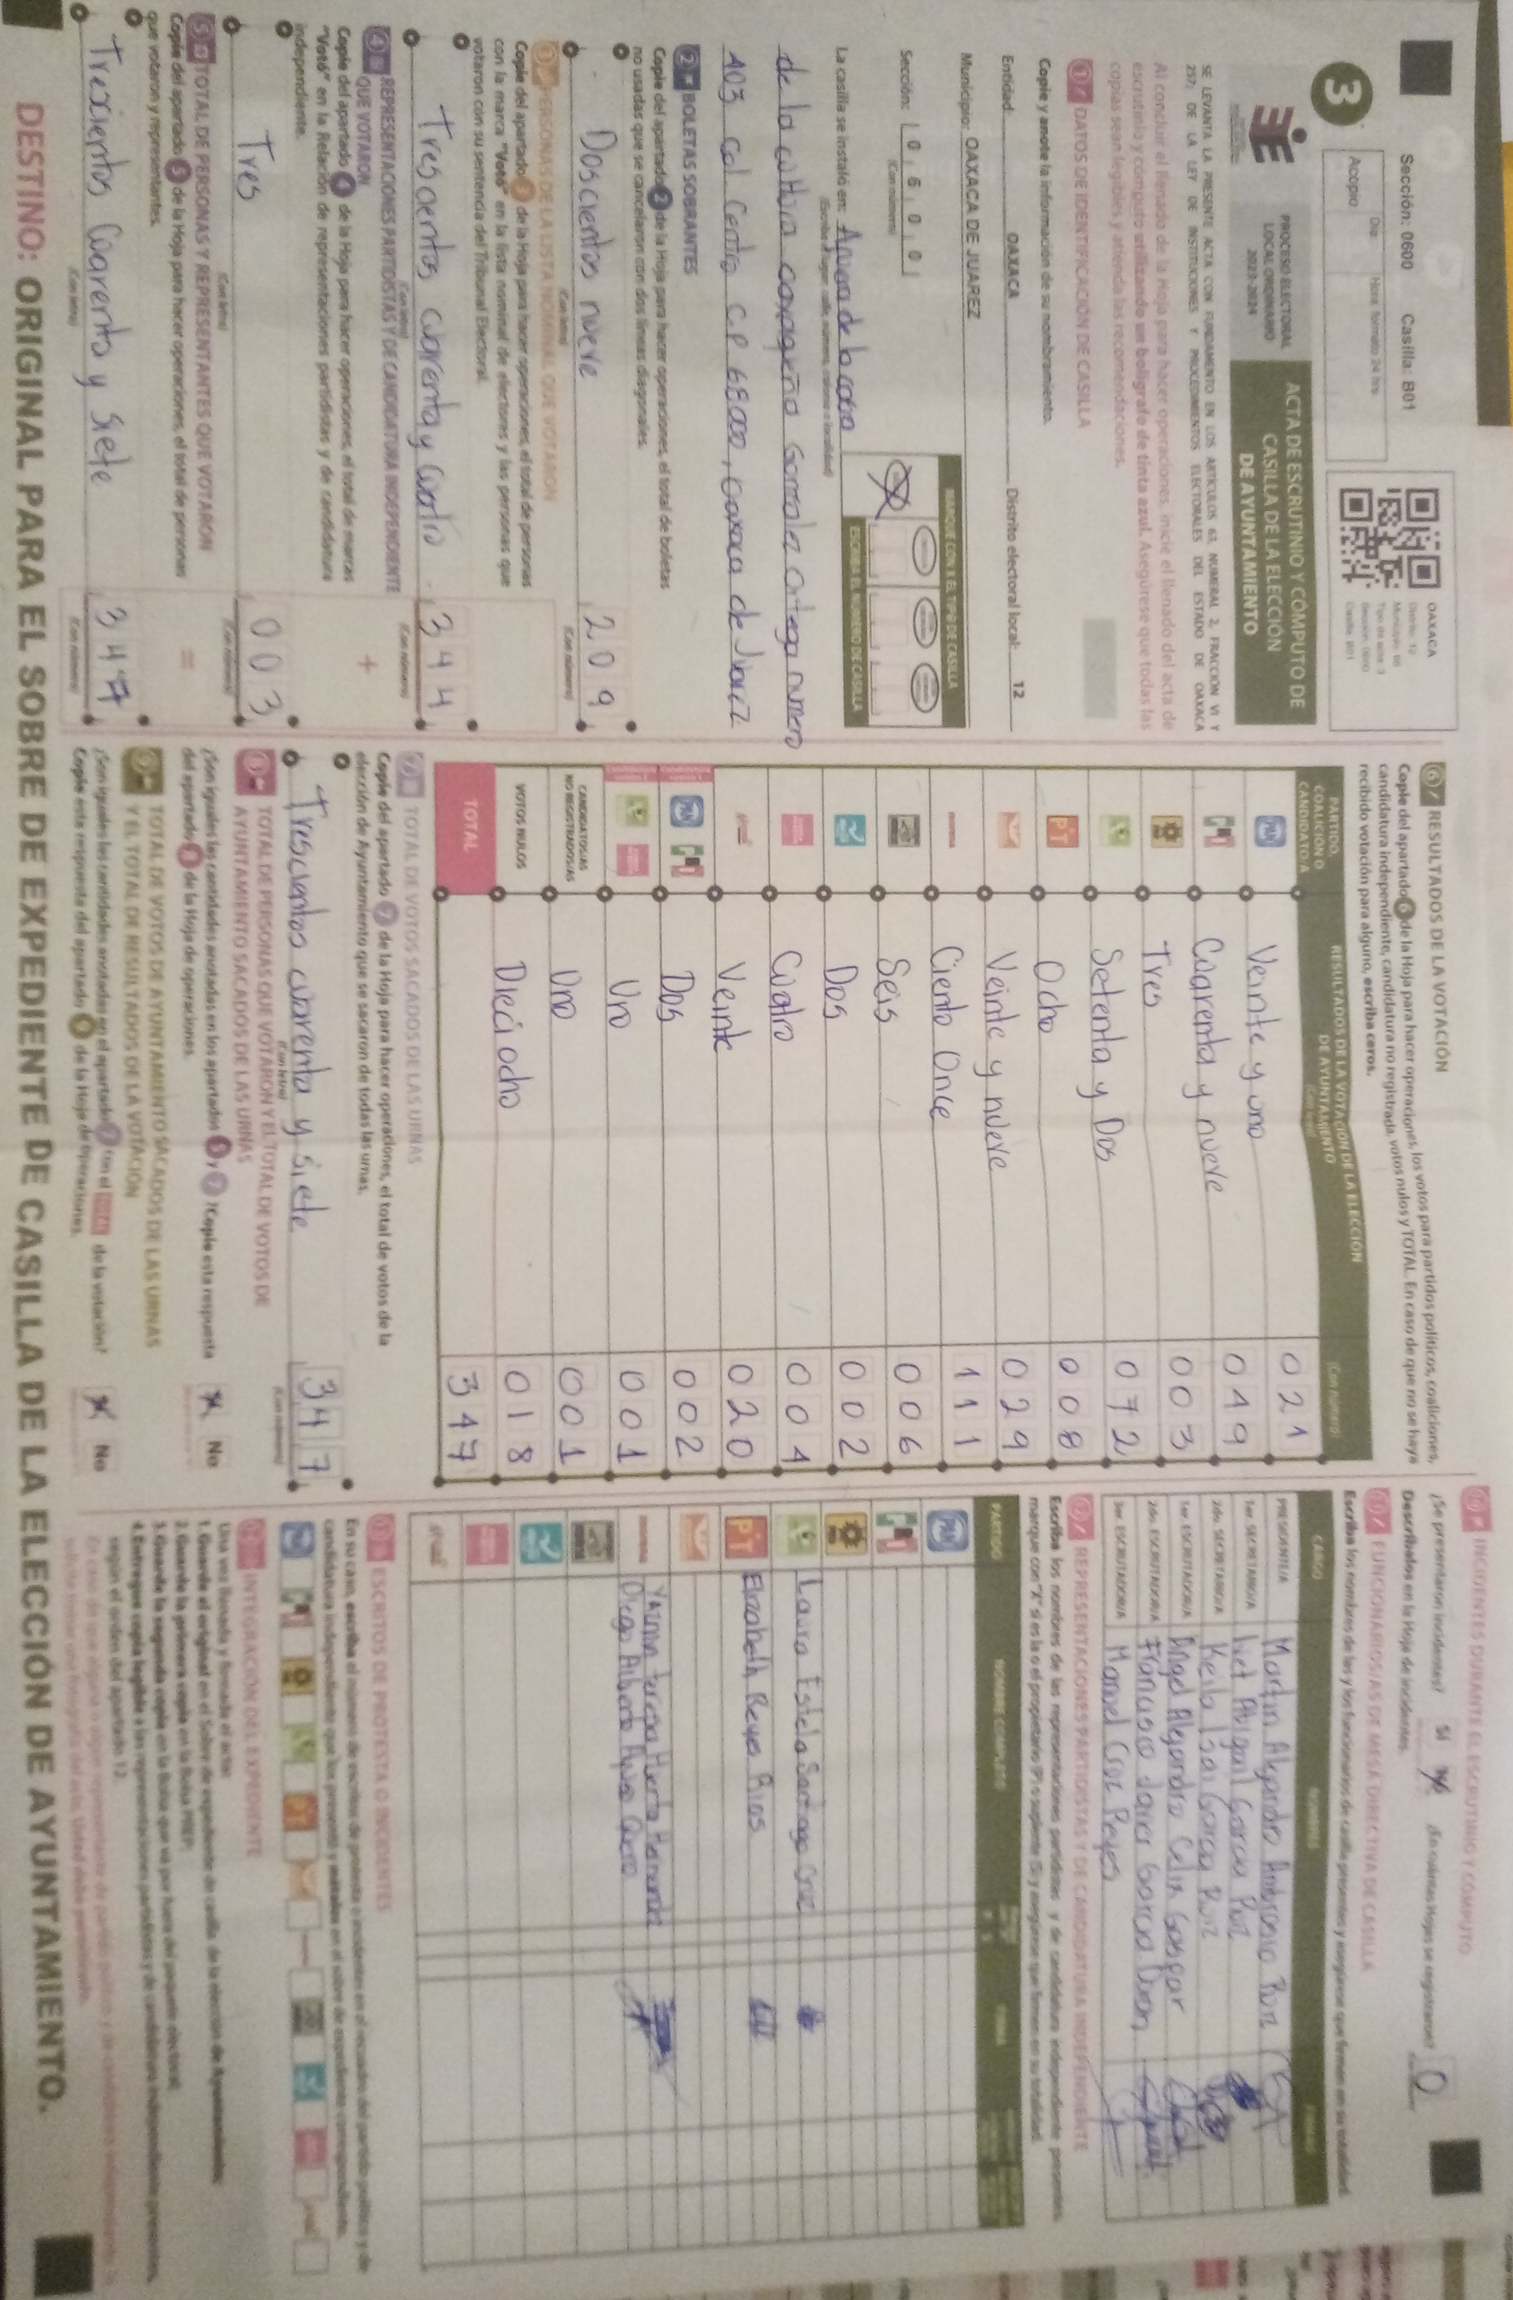 Sección: 0600 Casilla: B01
Día Hora formato 24 hrs
Acopio
3
PROCESO ELECTORAL
LOCAL ORDINARIO
2023-2024
ACTA DE ESCRUTINIO Y CÓMPUTO DE
CASILLA DE LA ELECCIÓN
DE AYUNTAMIENTO
OAXACA
SE LEVANTA LA PRESENTE ACTA CON FUNDAMENTO EN LOS ARTÍCULOS 63, NUMERAL 2, FRACCIÓN VI Y
237; DE LA LEY DE INSTITUCIONES Y PROCEDIMIENTOS ELECTORALES DEL ESTADO DE OAXACA
Al concluir el llenado de la Hoja para hacer operaciones, inicie el llenado del acta de
escrutinio y cómputo utilizando un bolígrafo de tinta azul. Asegúrese que todas las
copias sean legibles y atienda las recomendaciones.
1 DATOS DE IDENTIFICACIÓN DE CASILLA
Copie y anote la información de su nombramiento.
Entidad: OAXACA Distrito electoral local: 12
Municipio: OAXACA DE JUAREZ
Sección: 0 6 0 0
(Con número)
MARQUE CON X EL TIPO DE CASILLA
ESCRIBA EL NÚMERO DE CASILLA
La casilla se instaló en:
de la cultura oaxaqueña Gonzalez Ortega numero
403 Col Centro C.P 68000, Oaxaca de Juarez
2 BOLETAS SOBRANTES
Copie del apartado 2 de la Hoja para hacer operaciones, el total de boletas
no usadas que se cancelaron con dos líneas diagonales.
Doscientos nueve 209
(Con letra) (Con número)
3 PERSONAS DE LA LISTA NOMINAL QUE VOTARON
Copie del apartado 3 de la Hoja para hacer operaciones, el total de personas
con la marca "Votó" en la lista nominal de electores y las personas que
votaron con su sentencia del Tribunal Electoral.
Tresientos cuarenta y cuatro 344
(Con letra) (Con número)
4 REPRESENTACIONES PARTIDISTAS Y DE CANDIDATURA INDEPENDIENTE
QUE VOTARON
Copie del apartado 4 de la Hoja para hacer operaciones, el total de marcas
"Votó" en la Relación de representaciones partidistas y de candidatura
independiente.
+
Tres 003
(Con letra) (Con número)
5 TOTAL DE PERSONAS Y REPRESENTANTES QUE VOTARON
Copie del apartado 5 de la Hoja para hacer operaciones, el total de personas
que votaron y representantes.
=
Trescientos Cuarenta y Siete 347
(Con letra) (Con número)
6 RESULTADOS DE LA VOTACIÓN
Copie del apartado 6 de la Hoja para hacer operaciones, los votos para partidos políticos, coaliciones,
candidatura independiente, candidatura no registrada, votos nulos y TOTAL. En caso de que no se haya
recibido votación para alguno, escriba ceros.
PARTIDO,
COALICIÓN O
CANDIDATO/A
RESULTADOS DE LA VOTACIÓN DE LA ELECCIÓN
DE AYUNTAMIENTO
(Con letra) (Con número)
PAN Veinte y uno 021
Cuarenta y nueve 049
Tres 003
Setenta y Dos 072
PT Ocho 008
Veinte y nueve 029
morena Ciento Once 111
Seis 006
Dos 002
Cuatro 004
Veinte 020
PAN Dos 002
Uno 001
CANDIDATOS/AS
NO REGISTRADOS/AS Uno 001
VOTOS NULOS Dieci ocho 018
TOTAL 347
7 TOTAL DE VOTOS SACADOS DE LAS URNAS
Copie del apartado 7 de la Hoja para hacer operaciones, el total de votos de la
elección de Ayuntamiento que se sacaron de todas las urnas.
Trescientos cuarenta y siete 347
(Con letra) (Con número)
8 TOTAL DE PERSONAS QUE VOTARON Y EL TOTAL DE VOTOS DE
AYUNTAMIENTO SACADOS DE LAS URNAS
¿Son iguales las cantidades anotadas en los apartados 5 y 7? Copie esta respuesta
del apartado 8 de la Hoja de operaciones. No
9 TOTAL DE VOTOS DE AYUNTAMIENTO SACADOS DE LAS URNAS
Y EL TOTAL DE RESULTADOS DE LA VOTACIÓN
¿Son iguales las cantidades anotadas en el apartado 7 con el TOTAL de la votación?
Copie esta respuesta del apartado 9 de la Hoja de operaciones. No
10 INCIDENTES DURANTE EL ESCRUTINIO Y CÓMPUTO
¿Se presentaron incidentes? Sí ¿En cuántas Hojas se registraron? 0
Descríbalos en la Hoja de incidentes.
11 FUNCIONARIOS/AS DE MESA DIRECTIVA DE CASILLA
Escriba los nombres de las y los funcionarios de casilla presentes y asegúrese que firmen en su totalidad.
CARGO NOMBRE FIRMAS
PRESIDENTE/A Martin Alejandro Ambrosio Ruiz
1er SECRETARIO/A Abigail Garcia Ruiz
2do. SECRETARIO/A Keila Isai Garcia Ruiz
1er ESCRUTADOR/A Angel Alejandro Celis Gaspar
2do. ESCRUTADOR/A Francisco Javier Garcia
3er ESCRUTADOR/A Manuel Cruz Reyes
12 REPRESENTACIONES PARTIDISTAS Y DE CANDIDATURA INDEPENDIENTE
Escriba los nombres de las representaciones partidistas y de candidatura independiente presentes,
marque con "X" si es la o el propietario (P) o suplente (S) y asegúrese que firmen en su totalidad.
PARTIDO NOMBRE COMPLETO FIRMA
PAN
Laura Estela Santiago Cruz
PT Elizabeth Reyes Rios
morena Teresa Huerta Hernandez
Diego Alberto
13 ESCRITOS DE PROTESTA O INCIDENTES
En su caso, escriba el número de escritos de protesta o incidentes en el recuadro del partido político y de
candidatura independiente que los presentó y métalos en el sobre de expediente correspondiente.
14 INTEGRACIÓN DEL EXPEDIENTE
Una vez llenada y firmada el acta:
1. Guarde el original en el Sobre de expediente de casilla de la elección de Ayuntamiento;
2. Guarde la primera copia en la Bolsa PREP;
3. Guarde la segunda copia en la Bolsa que va por fuera del paquete electoral;
4. Entregue copia legible a las representaciones partidistas y de candidatura independiente presentes,
según el orden del apartado 12.
DESTINO: ORIGINAL PARA EL SOBRE DE EXPEDIENTE DE CASILLA DE LA ELECCIÓN DE AYUNTAMIENTO.